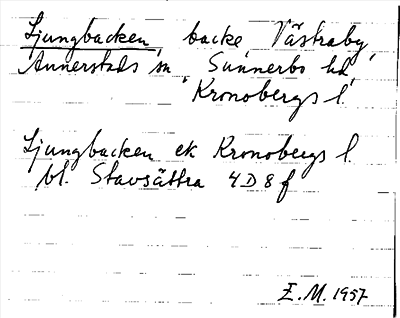 Ljungbacken, backe, Västraby,
Annerstads sn, Sunnerbo hd,
Kronobergs l.
Ljungbacken ek Kronobergs l.
bl. Stavsättra 4D8f
E.M. 1957